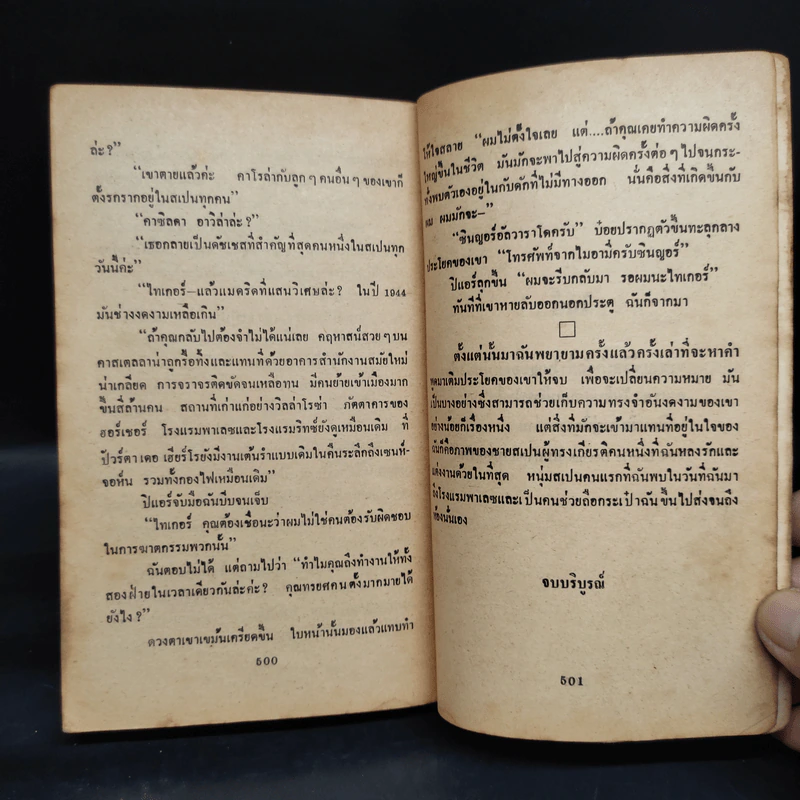 ล่ะ?”
“เขาตายแล้วค่ะ คาโรล่ากับลูกๆคนอื่นๆของเขาก็
ตั้งรกรากอยู่ในสเปนทุกคน”
“คาซิลดา อาวิล่าล่ะ?”
“เธอกลายเป็นดัชเชสที่สำคัญที่สุดคนหนึ่งในสเปนทุก
วันนี้ค่ะ”
“ไทเกอร์—แล้วแมดริดที่แสนวิเศษล่ะ? ในปี 1944
มันช่างงดงามเหลือเกิน”
“ถ้าคุณกลับไปต้องจำไม่ได้แน่เลย คฤหาสน์สวยๆบน
คาสเตลลาน่าถูกรื้อทิ้งและแทนที่ด้วยอาคารสำนักงานสมัยใหม่
น่าเกลียด การจราจรติดขัดจนเหลือทน มีคนย้ายเข้าเมืองมาก
ขึ้นสี่ล้านคน สถานที่เก่าแก่อย่างวิลล่าโรซ่า ภัตตาคารของ
ฮอร์เชอร์ โรงแรมพาเลซและโรงแรมริทซ์ยังดูเหมือนเดิม ที่
ปัวร์ตา เดอ เฮียร์โรยังมีงานเต้นรำแบบเดิมในคืนระลึกถึงเซนท์-
จอห์น รวมทั้งกองไฟเหมือนเดิม”
ปิแอร์จับมือฉันบีบจนเจ็บ
“ไทเกอร์ คุณต้องเชื่อนะว่าผมไม่ใช่คนต้องรับผิดชอบ
ในการฆาตกรรมพวกนั้น”
ฉันตอบไม่ได้ แต่ถามไปว่า “ทำไมคุณถึงทำงานให้ทั้ง
สองฝ่ายในเวลาเดียวกันล่ะค่ะ? คุณทรยศคนตั้งมากมายได้
ยังไง?”
ดวงตาเขาเขม้นเครียดขึ้น ใบหน้านั้นมองแล้วแทบทำ
500
ให้ใจสลาย “ผมไม่ตั้งใจเลย แต่....ถ้าคุณเคยทำความผิดครั้ง
ใหญ่ขึ้นในชีวิต มันมักจะพาไปสู่ความผิดครั้งต่อๆไปจนกระ-
ทั่งพบตัวเองอยู่ในกับดักที่ไม่มีทางออก นั่นคือสิ่งที่เกิดขึ้นกับ
ผม ผมมักจะ—”
“ซินญอร์อัลวาราโดครับ” บ๋อยปรากฏตัวขึ้นทะลุกลาง
ประโยคของเขา “โทรศัพท์จากไมอามี่ครับซินญอร์”
ปิแอร์ลุกขึ้น “ผมจะรีบกลับมา รอผมนะไทเกอร์”
ทันทีที่เขาหายลับออกนอกประตู ฉันก็จากมา
ตั้งแต่นั้นมาฉันพยายามครั้งแล้วครั้งเล่าที่จะหาคำ
พูดมาเติมประโยคของเขาให้จบ เพื่อจะเปลี่ยนความหมาย มัน
เป็นบางอย่างซึ่งสามารถช่วยเก็บความทรงจำอันงดงามของเขา
อย่างน้อยก็เรื่องหนึ่ง แต่สิ่งที่มักจะเข้ามาแทนที่อยู่ในใจของ
ฉันก็คือภาพของชายสเปนผู้ทรงเกียรติคนหนึ่งที่ฉันหลงรักและ
แต่งงานด้วยในที่สุด หนุ่มสเปนคนแรกที่ฉันพบในวันที่ฉันมา
ถึงโรงแรมพาเลซและเป็นคนช่วยถือกระเป๋าฉันขึ้นไปส่งจนถึง
ห้องนั่นเอง
จบบริบูรณ์
501